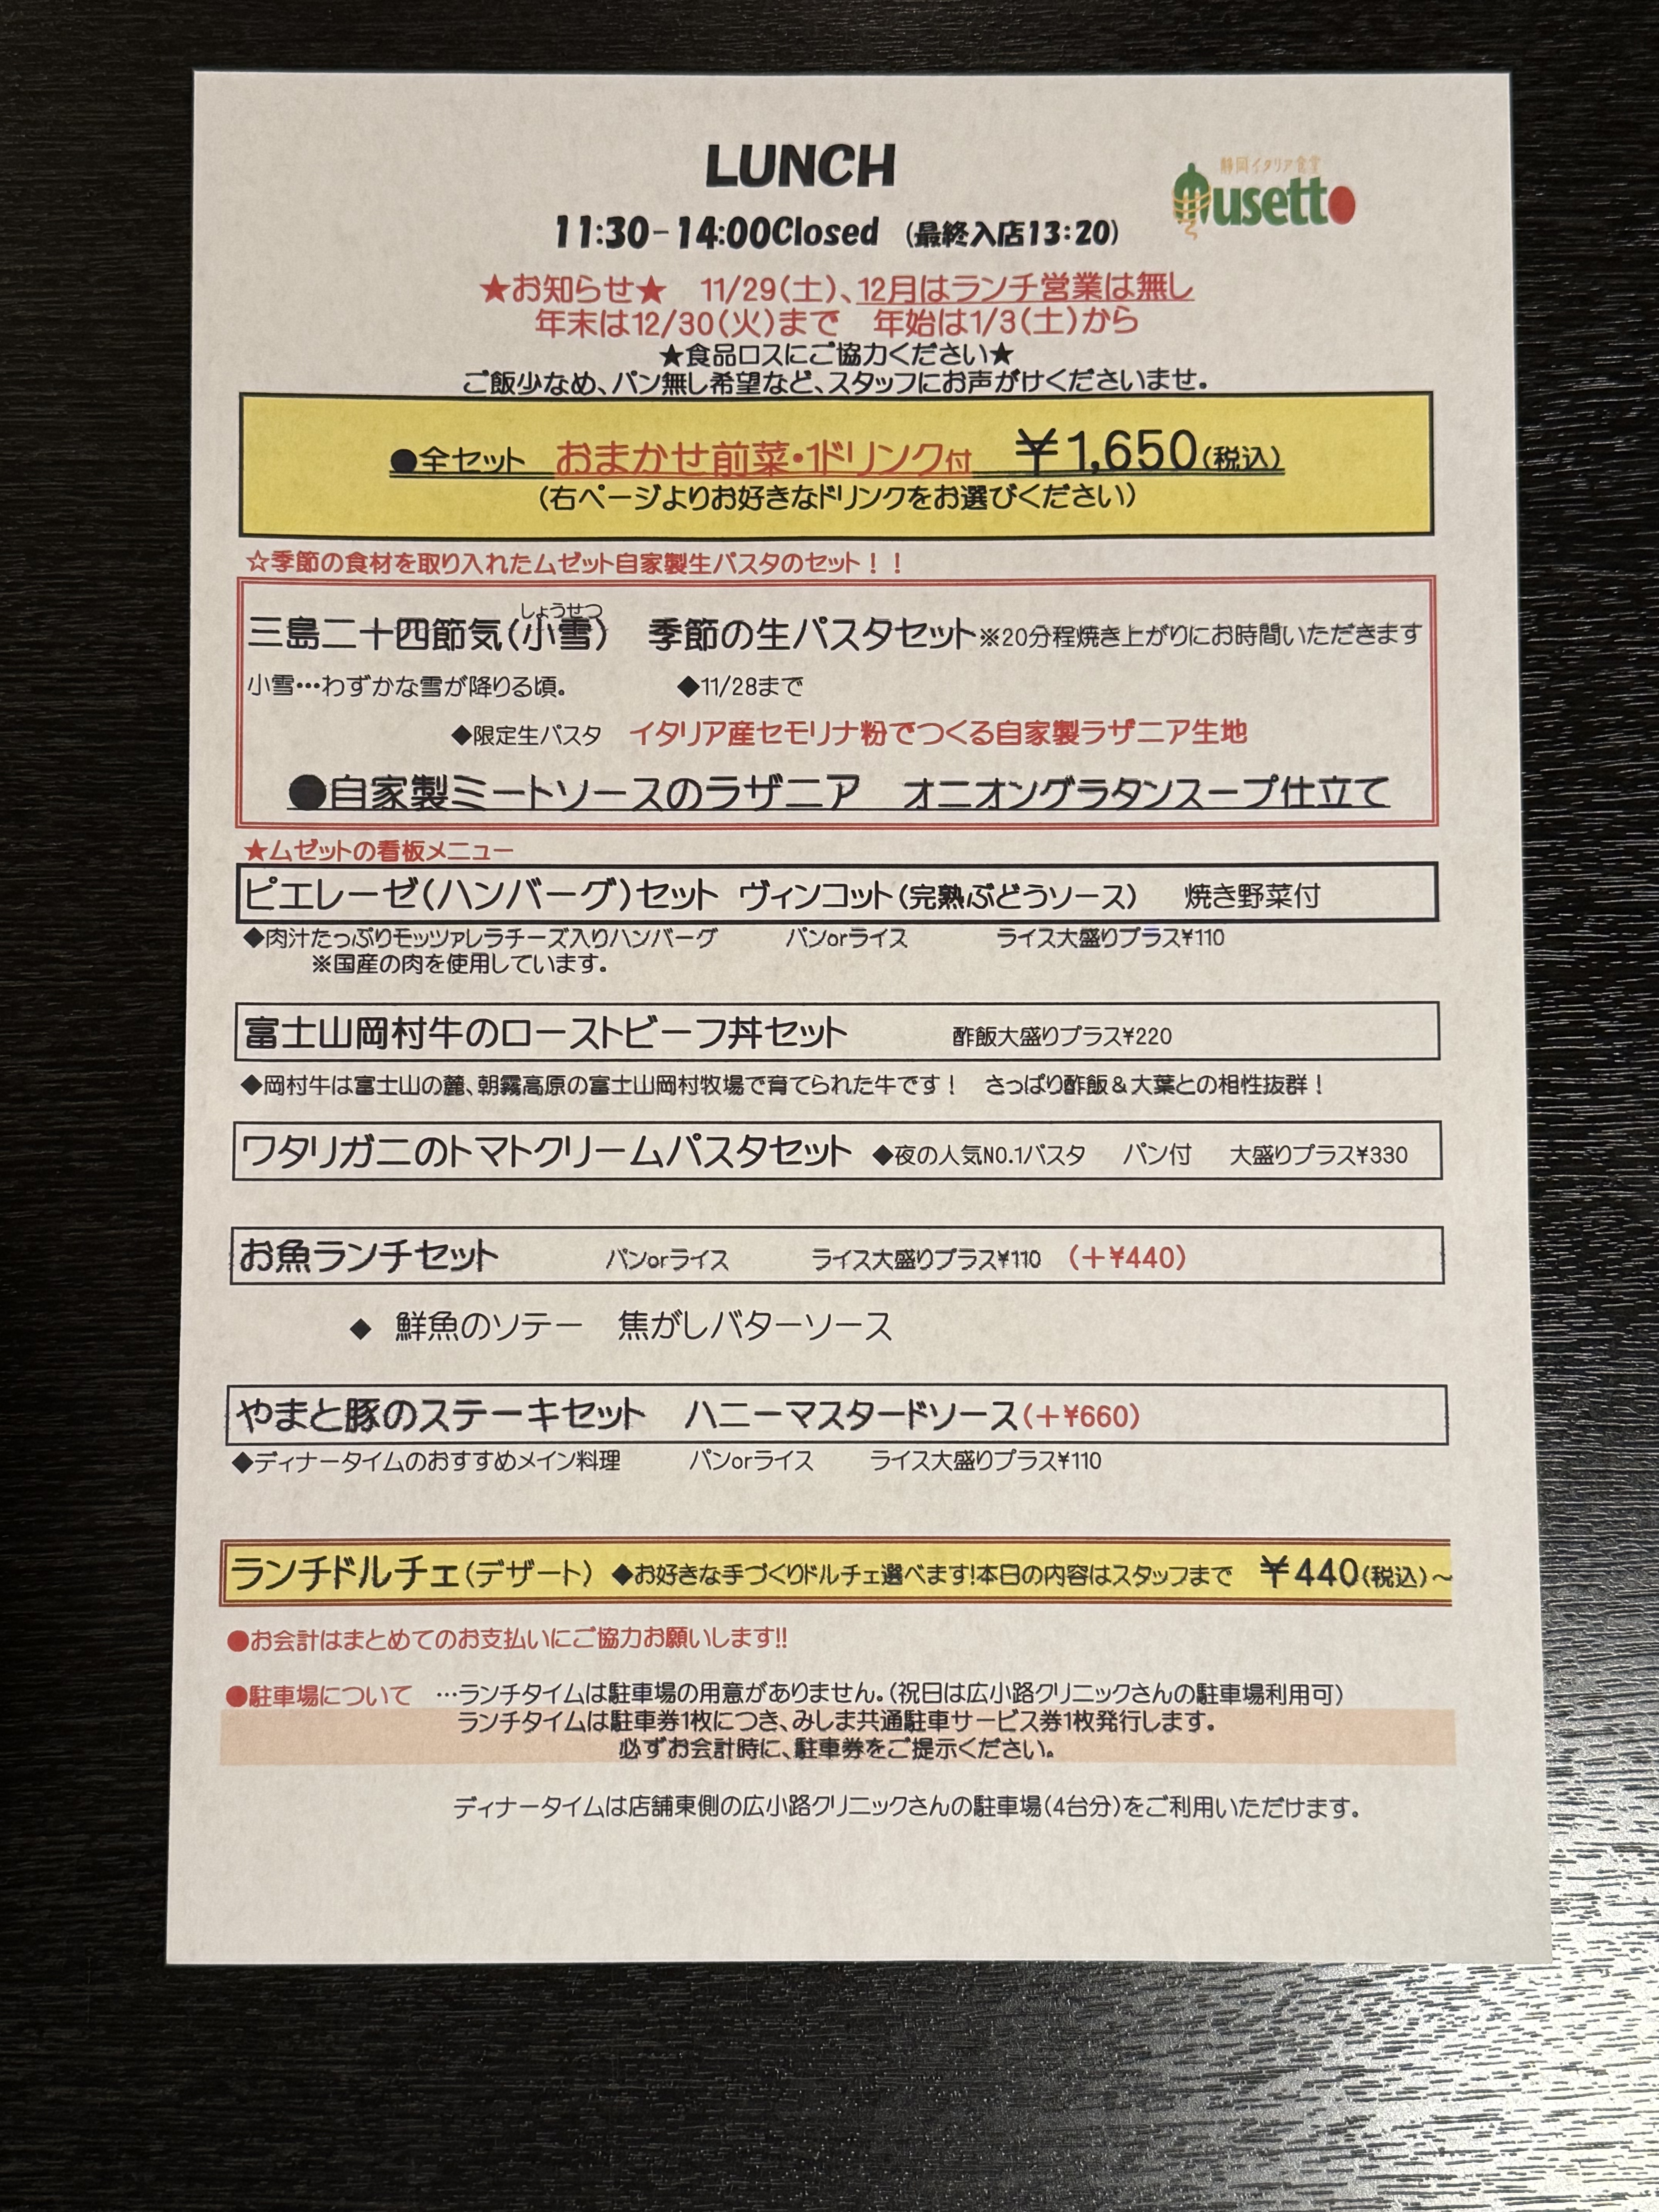 LUNCH
静岡イタリア食堂
musetto
11:30-14:00Closed (最終入店13:20)
★お知らせ★ 11/29(土)、12月はランチ営業は無し
年末は12/30(火)まで 年始は1/3(土)から
★食品ロスにご協力ください★
ご飯少なめ、パン無し希望など、スタッフにお声がけくださいませ。
●全セット おまかせ前菜・1ドリンク付 ¥1,650(税込)
(右ページよりお好きなドリンクをお選びください)
☆季節の食材を取り入れたムゼット自家製生パスタのセット！！
しょうせつ
三島二十四節気(小雪) 季節の生パスタセット※20分程焼き上がりにお時間いただきます
小雪…わずかな雪が降りる頃。 ◆11/28まで
◆限定生パスタ イタリア産セモリナ粉でつくる自家製ラザニア生地
●自家製ミートソースのラザニア オニオングラタンスープ仕立て
★ムゼットの看板メニュー
ピエレーゼ(ハンバーグ)セット ヴィンコット(完熟ぶどうソース) 焼き野菜付
◆肉汁たっぷりモッツァレラチーズ入りハンバーグ パンorライス ライス大盛りプラス¥110
※国産の肉を使用しています。
富士山岡村牛のローストビーフ丼セット 酢飯大盛りプラス¥220
◆岡村牛は富士山の麓、朝霧高原の富士山岡村牧場で育てられた牛です！ さっぱり酢飯＆大葉との相性抜群！
ワタリガニのトマトクリームパスタセット ◆夜の人気NO.1パスタ パン付 大盛りプラス¥330
お魚ランチセット パンorライス ライス大盛りプラス¥110 (＋¥440)
◆ 鮮魚のソテー 焦がしバターソース
やまと豚のステーキセット ハニーマスタードソース(＋¥660)
◆ディナータイムのおすすめメイン料理 パンorライス ライス大盛りプラス¥110
ランチドルチェ(デザート) ◆お好きな手づくりドルチェ選べます!本日の内容はスタッフまで ¥440(税込)～
●お会計はまとめてのお支払いにご協力お願いします!!
●駐車場について …ランチタイムは駐車場の用意がありません。(祝日は広小路クリニックさんの駐車場利用可)
ランチタイムは駐車券1枚につき、みしま共通駐車サービス券1枚発行します。
必ずお会計時に、駐車券をご提示ください。
ディナータイムは店舗東側の広小路クリニックさんの駐車場(4台分)をご利用いただけます。